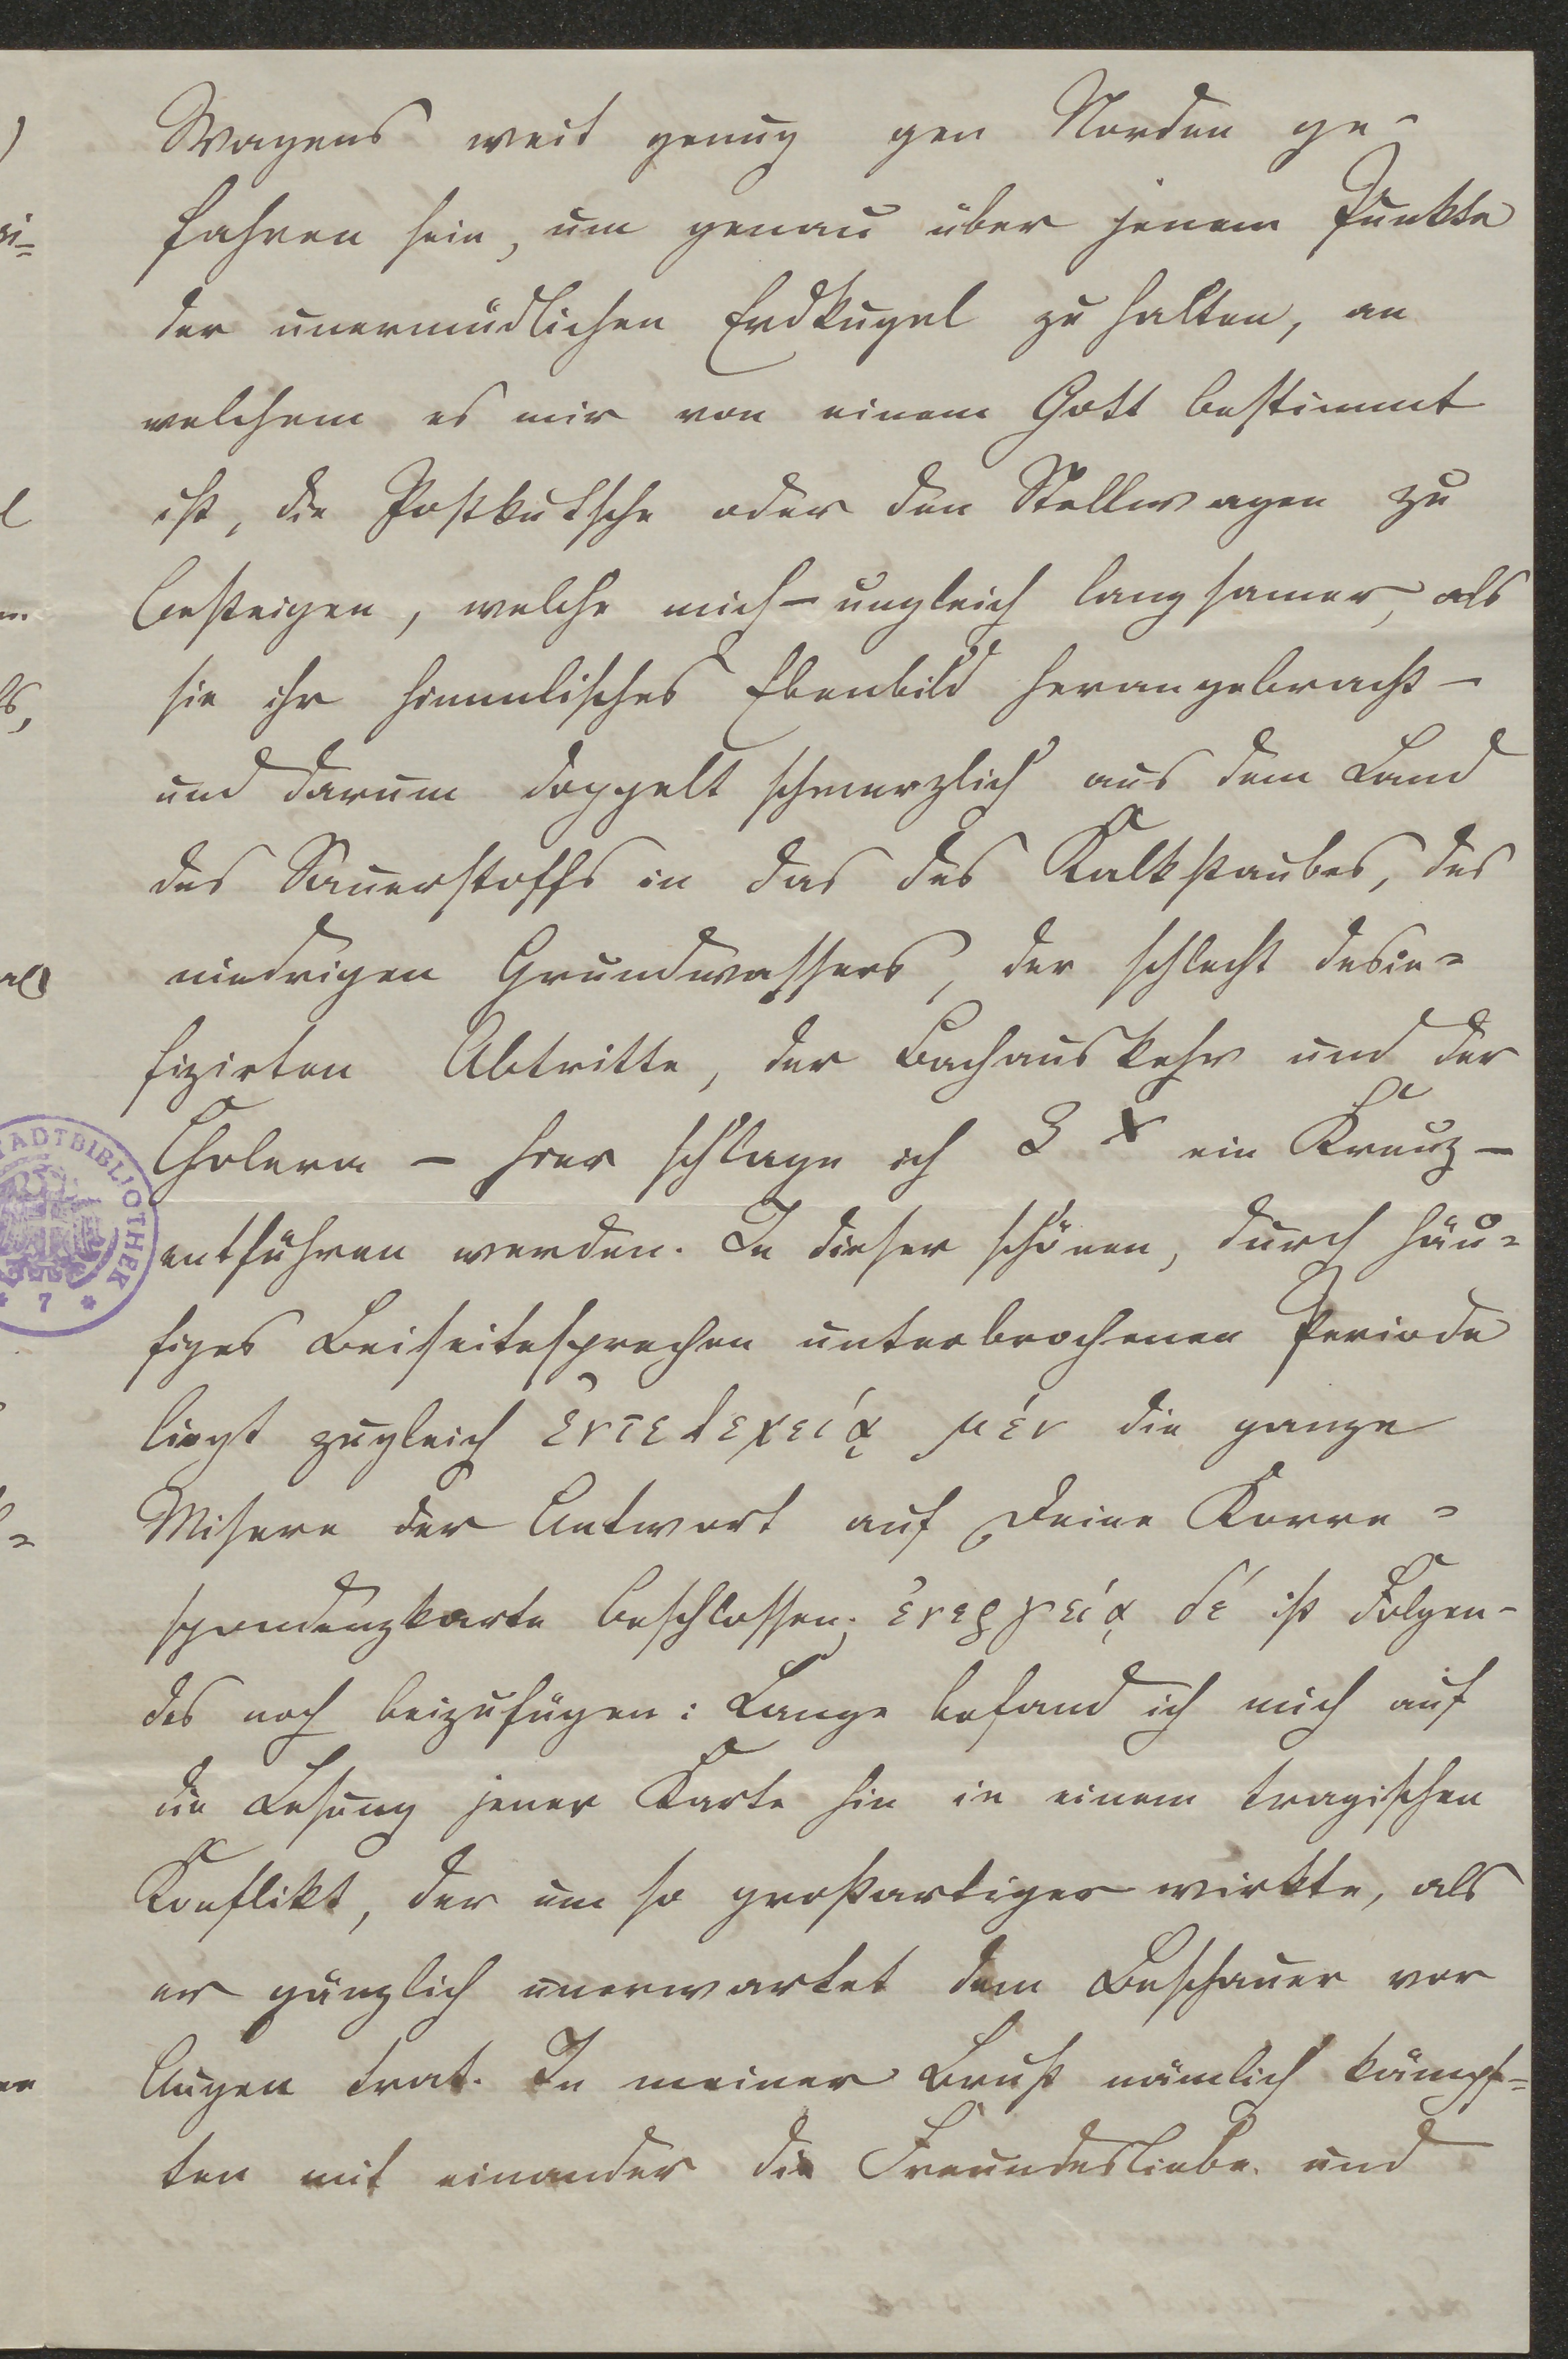 Wagens weit genug gen Norden ge-
fahren sein, um genau über jenem Punkte
der unermüdlichen Erdkugel zu halten, an
welchem es mir von einem Gott bestimmt
ist, die Postkutsche oder den Stellwagen zu
besteigen, welche mich – ungleich langsamer, als
sie ihr himmlisches Ebenbild herangebracht –
und darum doppelt schmerzlich aus dem Land
des Sauerstoffs in das des Kalkstaubes, des
niedrigen Grundwassers, der schlecht desin=
fizirten Abtritte, der Bachauskehr und der
Cholera – hier schlage ich 3 x ein Kreuz –
entführen werden. In dieser schönen, durch häu=
figes Beiseitesprechen unterbrochenen Periode
liegt zugleich ἐντελεχείᾳ μέν die ganze
Misere der Antwort auf Deine Korre=
spondenzkarte beschlossen; ἐνεργείᾳ δέ ist Folgen-
des noch beizufügen: Lange befand ich mich auf
die Lesung jener Karte hin in einem tragischen
Konflikt, der um so großartiger wirkte, als
er gänzlich unerwartet dem Beschauer vor
Augen trat. In meiner Brust nämlich kämpf=
ten mit einander die Freundesliebe und
STADTBIBLIOTHEK
* 7 *